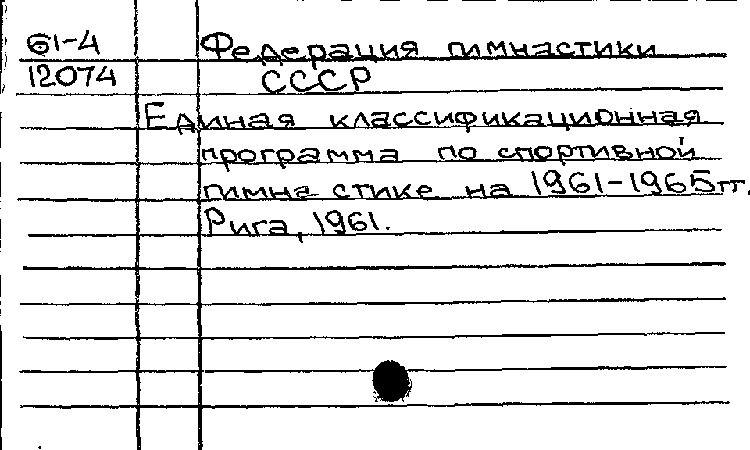 61-4 Федерация гимнастики
12074 СССР
Единая классификационная
программа по спортивной
гимнастике на 1961-1965гг.
Рига, 1961.